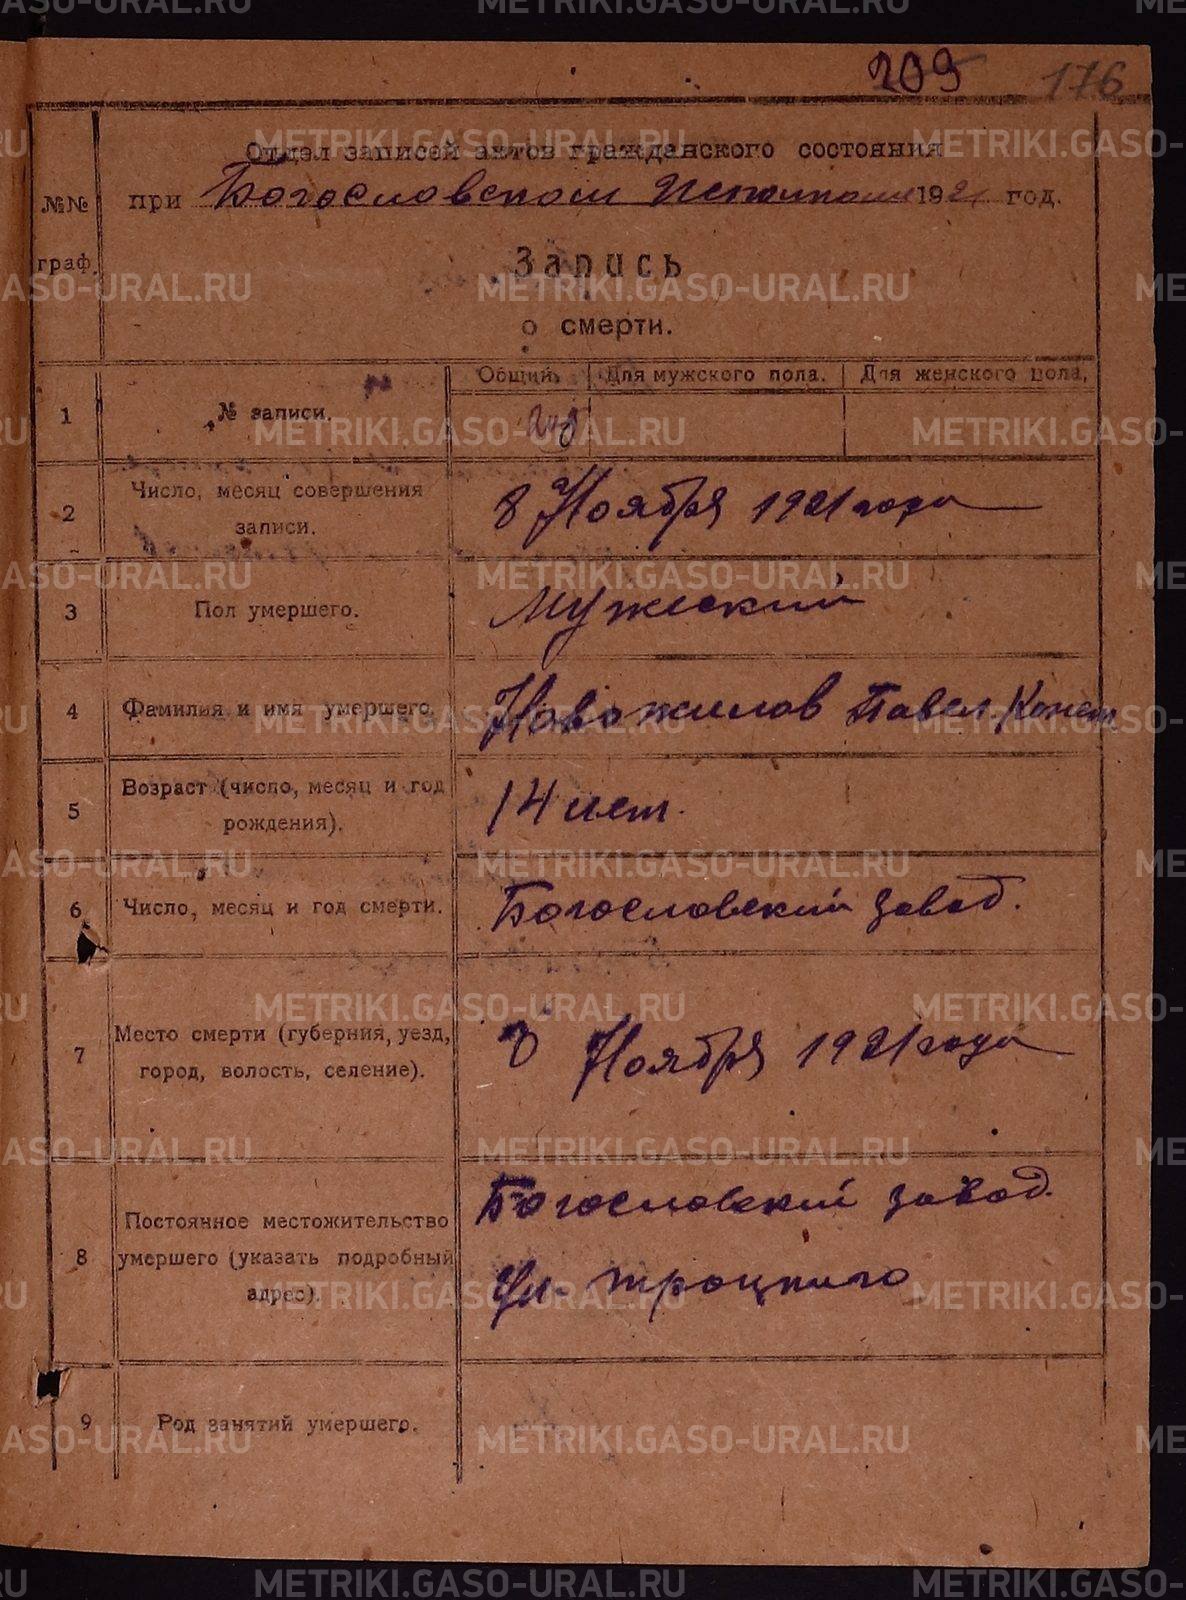 209 176
Отдел записей актов гражданского состояния
при Богословском Исполкоме 1921 год.
№№ граф.
Запись
о смерти.
Общий. Для мужского пола. Для женского пола.
1 № записи.
2 Число, месяц совершения записи. 8 Ноября 1921 года
3 Пол умершего. Мужеский
4 Фамилия и имя умершего. Новожилов Павел
5 Возраст (число, месяц и год рождения). 14 лет.
6 Число, месяц и год смерти. Богословский завод.
7 Место смерти (губерния, уезд, город, волость, селение). 8 Ноября 1921 года
8 Постоянное местожительство умершего (указать подробный адрес). Богословский завод.
Ул. Троцкого
9 Род занятий умершего.
METRIKI.GASO-URAL.RU